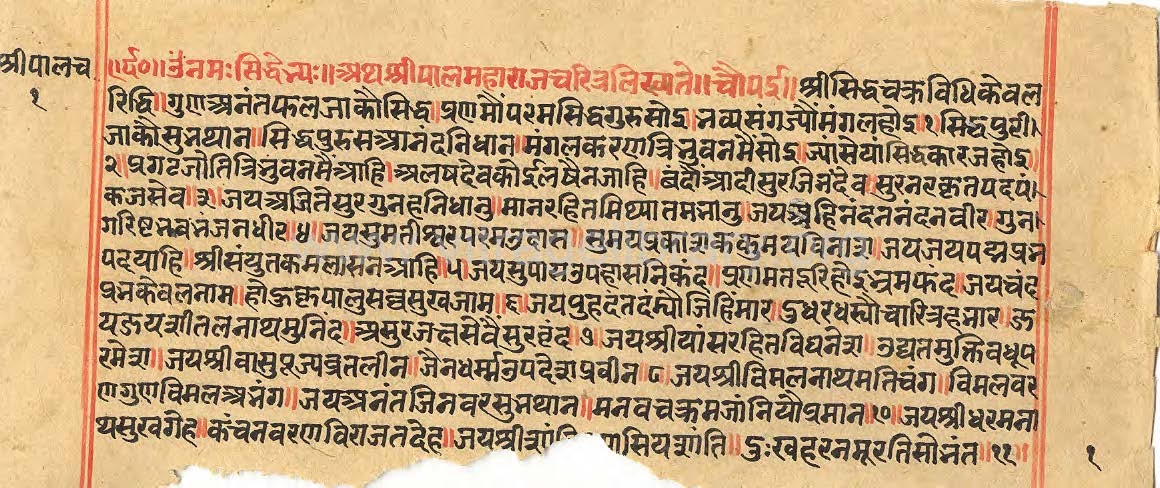 श्रीपालच
१
॥र्द०॥ उंनमःसिद्धेभ्यः॥ अथश्रीपालमहाराजचरित्रलिख्यते॥ चौपई॥ श्रीसिद्धचक्रविधिकेवल
रिद्धि॥ गुणअनंतफलजाकौसिद्ध॥ प्रणमौंपरमसिद्धगुरुसोइ॥ भव्यसंगज्यौंमंगलहोइ॥१ सिद्धपुरी।
जाकौसुभथान॥ सिद्धपुरुसआनंदनिधान॥ मंगलकरणत्रिभुवनमैंसोइ॥ ज्यासेयांसिद्धकारजहोइ॥
२॥ प्रगटजौतित्रिभुवनमैंआहि॥ अलषदेवकोईलषैनजाहि॥ बंदौंआदीसुरजिनदेव॥ सुरनरकृतपदपं।
कजसेव॥३॥ जयअजितेसुरगुनहनिधानु॥ मानरहितमिथ्यातमभानु॥ जयअहिनंदननंदनवीर॥ गुन।
गरिष्ट जनधीर॥४॥ जयसुमतीश्वरपरम ॥ सुमयप्रकाशककुमयविनाश॥ जयजयपद्मप्रभ
पदयाहि॥ श्रीसंयुतकमलासनआहि॥५॥ जयसुपासउपहासनिकंद॥ प्रणमत होइभ्रमफंद॥ जयचंद
प्रभकेवलनाम॥ होऊकृपालु सुखजाम॥६॥ जयपुहपदंत जिहिमार॥ दुधरधस्यौचारित्रहभार॥ ज
यजयशीतलनाथमुनिंद॥ असुरजक्षसेवैसुरवृंद॥७॥ जयश्रीयांसरहितविघनेश॥ उद्यतमुक्तिवधूप
रमेश॥ जयश्रीवासुपूज्यव्रतलीन॥ जैनधर्म्मउपदेशप्रवीन॥८॥ जयश्रीविमलनाथमतिचंग॥ विमलवर
णगुणविमलअभंग॥ जयअनंतजिनवरसुभथान॥ मनवचक्रमजांनियौप्रमान॥१०॥ जयश्रीधरमना
थसुखगेह॥ कंचनवरणविराजतदेह॥ जयश्रीशां सियशांति॥ दुःखहरनमूरतिसोभंत॥११॥
१